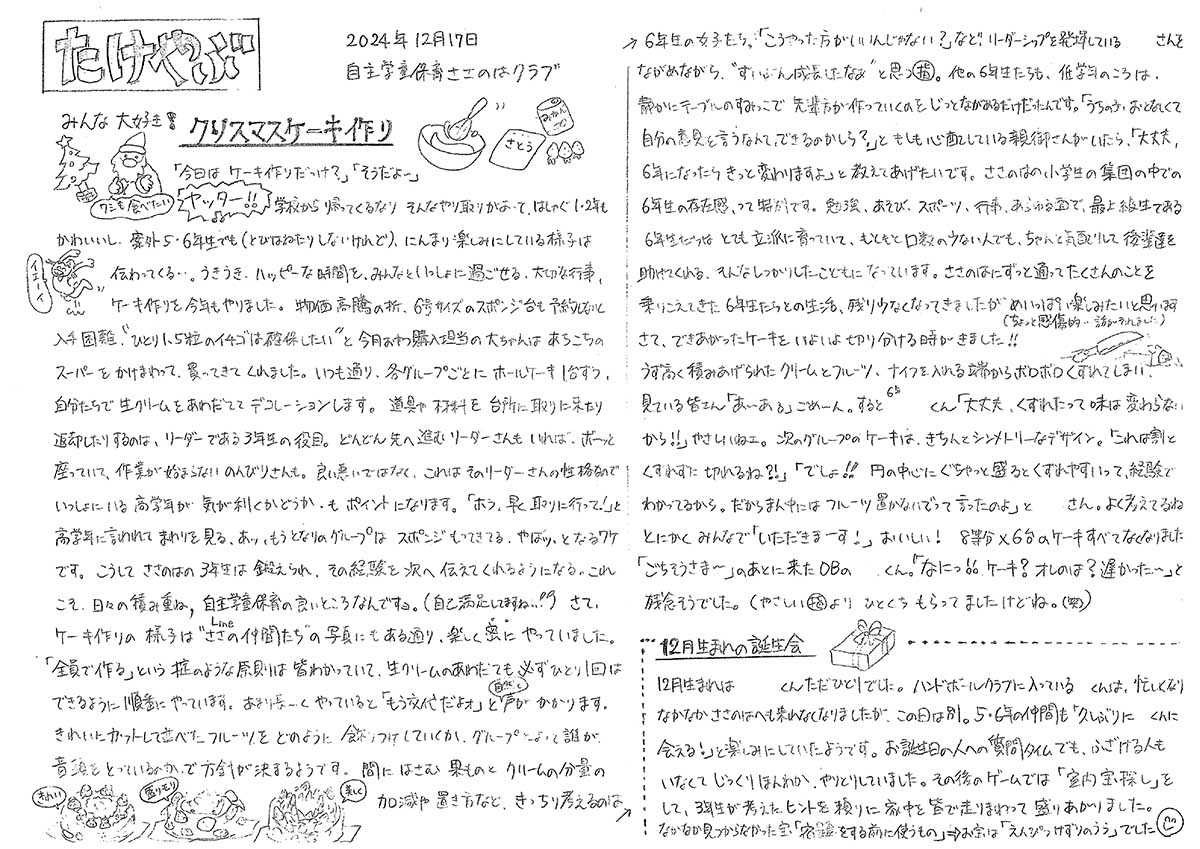 たけやぶ
2024年12月17日
自主学童保育ささのはクラブ
みんな大好き!
クリスマスケーキ作り
さとう
みかん
ワシも食べたい
「今日はケーキ作りだっけ?」「そうだよ〜」
ヤッター!! 学校から帰ってくるなり そんなやり取りがあって、はしゃぐ1・2年も
かわいいし、案外5・6年生でも(とびはねたりしないけれど)、にんまり楽しみにしている様子は
イエーイ
伝わってくる…。うきうき、ハッピーな時間を、みんなといっしょに過ごせる、大切な行事、
ケーキ作りを今年もやりました。物価高騰の折、6号サイズのスポンジ台も予約しないと
入手困難、"ひとり1、5粒のイチゴは確保したい"と今月おやつ購入担当の大ちゃんはあちこちの
スーパーをかけまわって、買ってきてくれました。いつも通り、各グループごとにホールケーキ1台ずつ、
自分たちで生クリームをあわだててデコレーションします。道具や材料を台所に取りに来たり
返却したりするのは、リーダーである3年生の役目。どんどん先へ進むリーダーさんもいれば、ボーッと
座っていて、作業が始まらないのんびりさんも。良い悪いではなく、これはそのリーダーさんの性格なので
いっしょにいる高学年が気が利くかどうか、もポイントになります。「ホラ、早く取りに行って!」と
高学年に言われてまわりを見る、あッ、もうとなりのグループはスポンジもってきてる、やばッ、となるワケ
です。こうしてささのはの3年生は鍛えられ、その経験を次へ伝えてくれるようになる。これ
こそ、日々の積み重ね、自主学童保育の良いところなんですね。(自己満足してますね…!?)さて、
ケーキ作りの様子はLine"ささの仲間たち"の写真にもある通り、楽しく密にやっていました。
「全員で作る」という掟のような原則は皆わかっていて、生クリームのあわだても必ずひとり1回は
できるように順番にやっています。あまり長〜くやっていると「もう交代だよォ」と自然と声がかかります。
きれいにカットして並べたフルーツをどのように飾りつけしていくか、グループによって誰が
音頭をとっているのかで方針が決まるようです。間にはさむ果ものとクリームの分量の
きれい
盛りモリ
美しく
加減や置き方など、きっちり考えるのは→
→6年生の女子たち。「こうやった方がいいんじゃない?」などリーダーシップを発揮している さんを
ながめながら、"ずいぶん成長したなぁ"と思う指。他の6年生たちも、低学年のころは、
静かにテーブルのすみっこで先輩方が作っていくのをじっとながめるだけだったんです。「うちの子、おとなしくて
自分の意見を言うなんて、できるのかしら?」ともしも心配している親御さんがいたら、「大丈夫、
6年になったらきっと変わりますよ」と教えてあげたいです。ささのはの小学生の集団の中での
6年生の存在感、って特別です。勉強、あそび、スポーツ、行事、あらゆる面で、最上級生である
6年生たちはとても立派に育っていて、もともと口数の少ない人でも、ちゃんと気配りして後輩達を
助けてくれる、そんなしっかりしたこどもになっています。ささのはにずっと通ってたくさんのことを
乗りこえてきた6年生たちとの生活、残り少なくなってきましたがめいっぱい楽しみたいと思います
(ちょっと感傷的…話がそれました)
さて、できあがったケーキをいよいよ切り分ける時がきました!!
うず高く積みあげられたクリームとフルーツ、ナイフを入れる端からボロボロくずれてしまい、
見ている皆さん「あ〜ある」ごめーん。すると 6年 くん「大丈夫、くずれたって味は変わらない
から!!」やさしいねェ。次のグループのケーキは、きちんとシンメトリーなデザイン。「これは割と
くずれずに切れるね?!」「でしょ!! 円の中心にぐちゃっと盛るとくずれやすいって、経験で
わかってるから。だからまん中にはフルーツ置かないでって言ったのよ」と さん。よく考えてるね
とにかくみんなで「いただきまーす!」おいしい! 8等分×6台のケーキすべてなくなりました
「ごちそうさま〜」のあとに来たOBの くん。「なにっ!! ケーキ?オレのは?遅かった〜」と
残念そうでした。(やさしい指よりひとくちもらってましたけどね。(笑))
12月生まれの誕生会
12月生まれは くんただひとりでした。ハンドボールクラブに入っている くんは、忙しくなり
なかなかささのはへも来れなくなりましたが、この日は別。5・6年の仲間も「久しぶりに くんに
会える!」と楽しみにしていたようです。お誕生日の人への質問タイムでも、ふざける人も
いなくてじっくりほんわか、やりとりしていました。その後のゲームでは「室内宝探し」を
して、3年生が考えたヒントを頼りに家中を皆で走りまわって盛りあがりました。
なかなか見つからなかった宝「宿題をする前に使うもの」⇒お宝は「えんぴつけずりのうら」でした